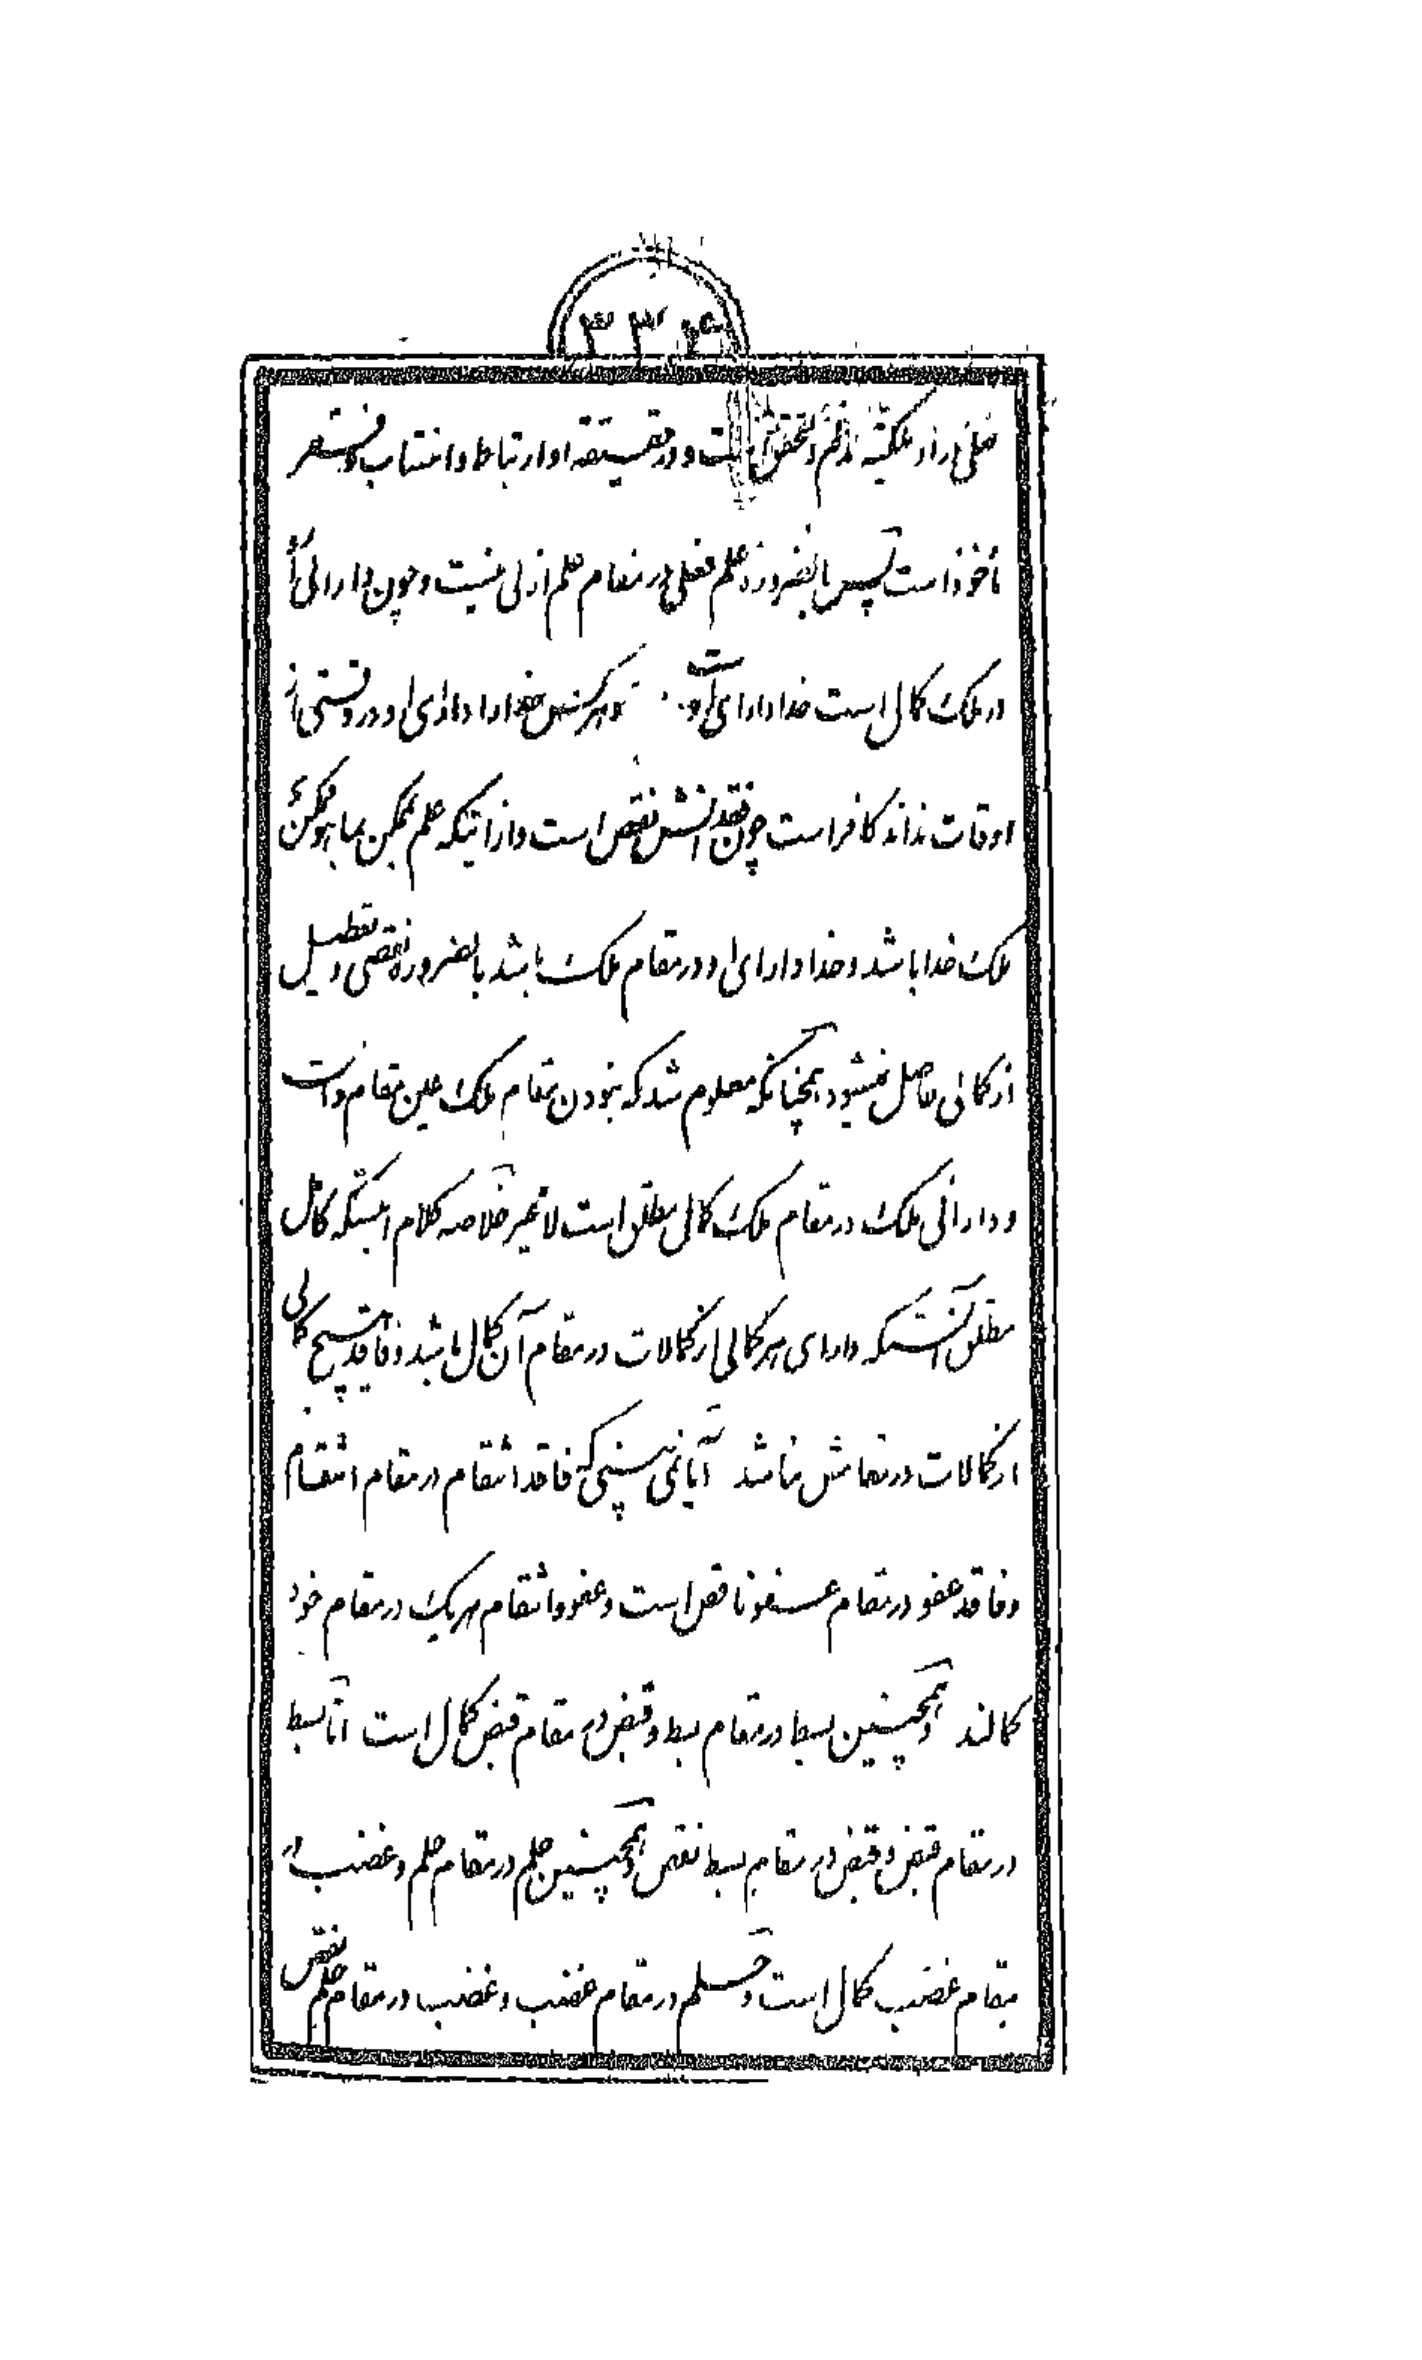 ۳۳۴
فعلی را از ملکیه و در حقیقته او ارتباط و انتساب و فقر
مأخوذ است پس بالضروره علم فعلی در مقام علم ازلی نیست و چون دارائی
در ملک کمال است خدا دارای اوست و هر کس خدا را دارای او در وقتی از
اوقات نداند کافر است چون فقدانش نقص است و از اینکه علم ممکن بما هو ممکن
ملک خدا باشد و خدا دارای او در مقام ملک باشد بالضروره نقصی و تعطیل
از کمالی حاصل نمیشود همچنانکه معلوم شد که نبودن مقام ملک عین مقام ذات
و دارائی ملک در مقام ملک کمال مطلق است لا غیر خلاصه کلام اینستکه کامل
مطلق آنستکه دارای هر کمالی از کمالات در مقام آن کمال باشد و فاقد هیچ کمالی
از کمالات در مقامش نباشد آیا نمی بینی که فاقد انتقام در مقام انتقام
و فاقد عفو در مقام عفو ناقص است و عفو و انتقام هر یک در مقام خود
کمالند و همچنین بسط در مقام بسط و قبض در مقام قبض کمال است اما بسط
در مقام قبض و قبض در مقام بسط نقص و همچنین حلم در مقام حلم و غضب در
مقام غضب کمال است و حلم در مقام غضب و غضب در مقام حلم نقص